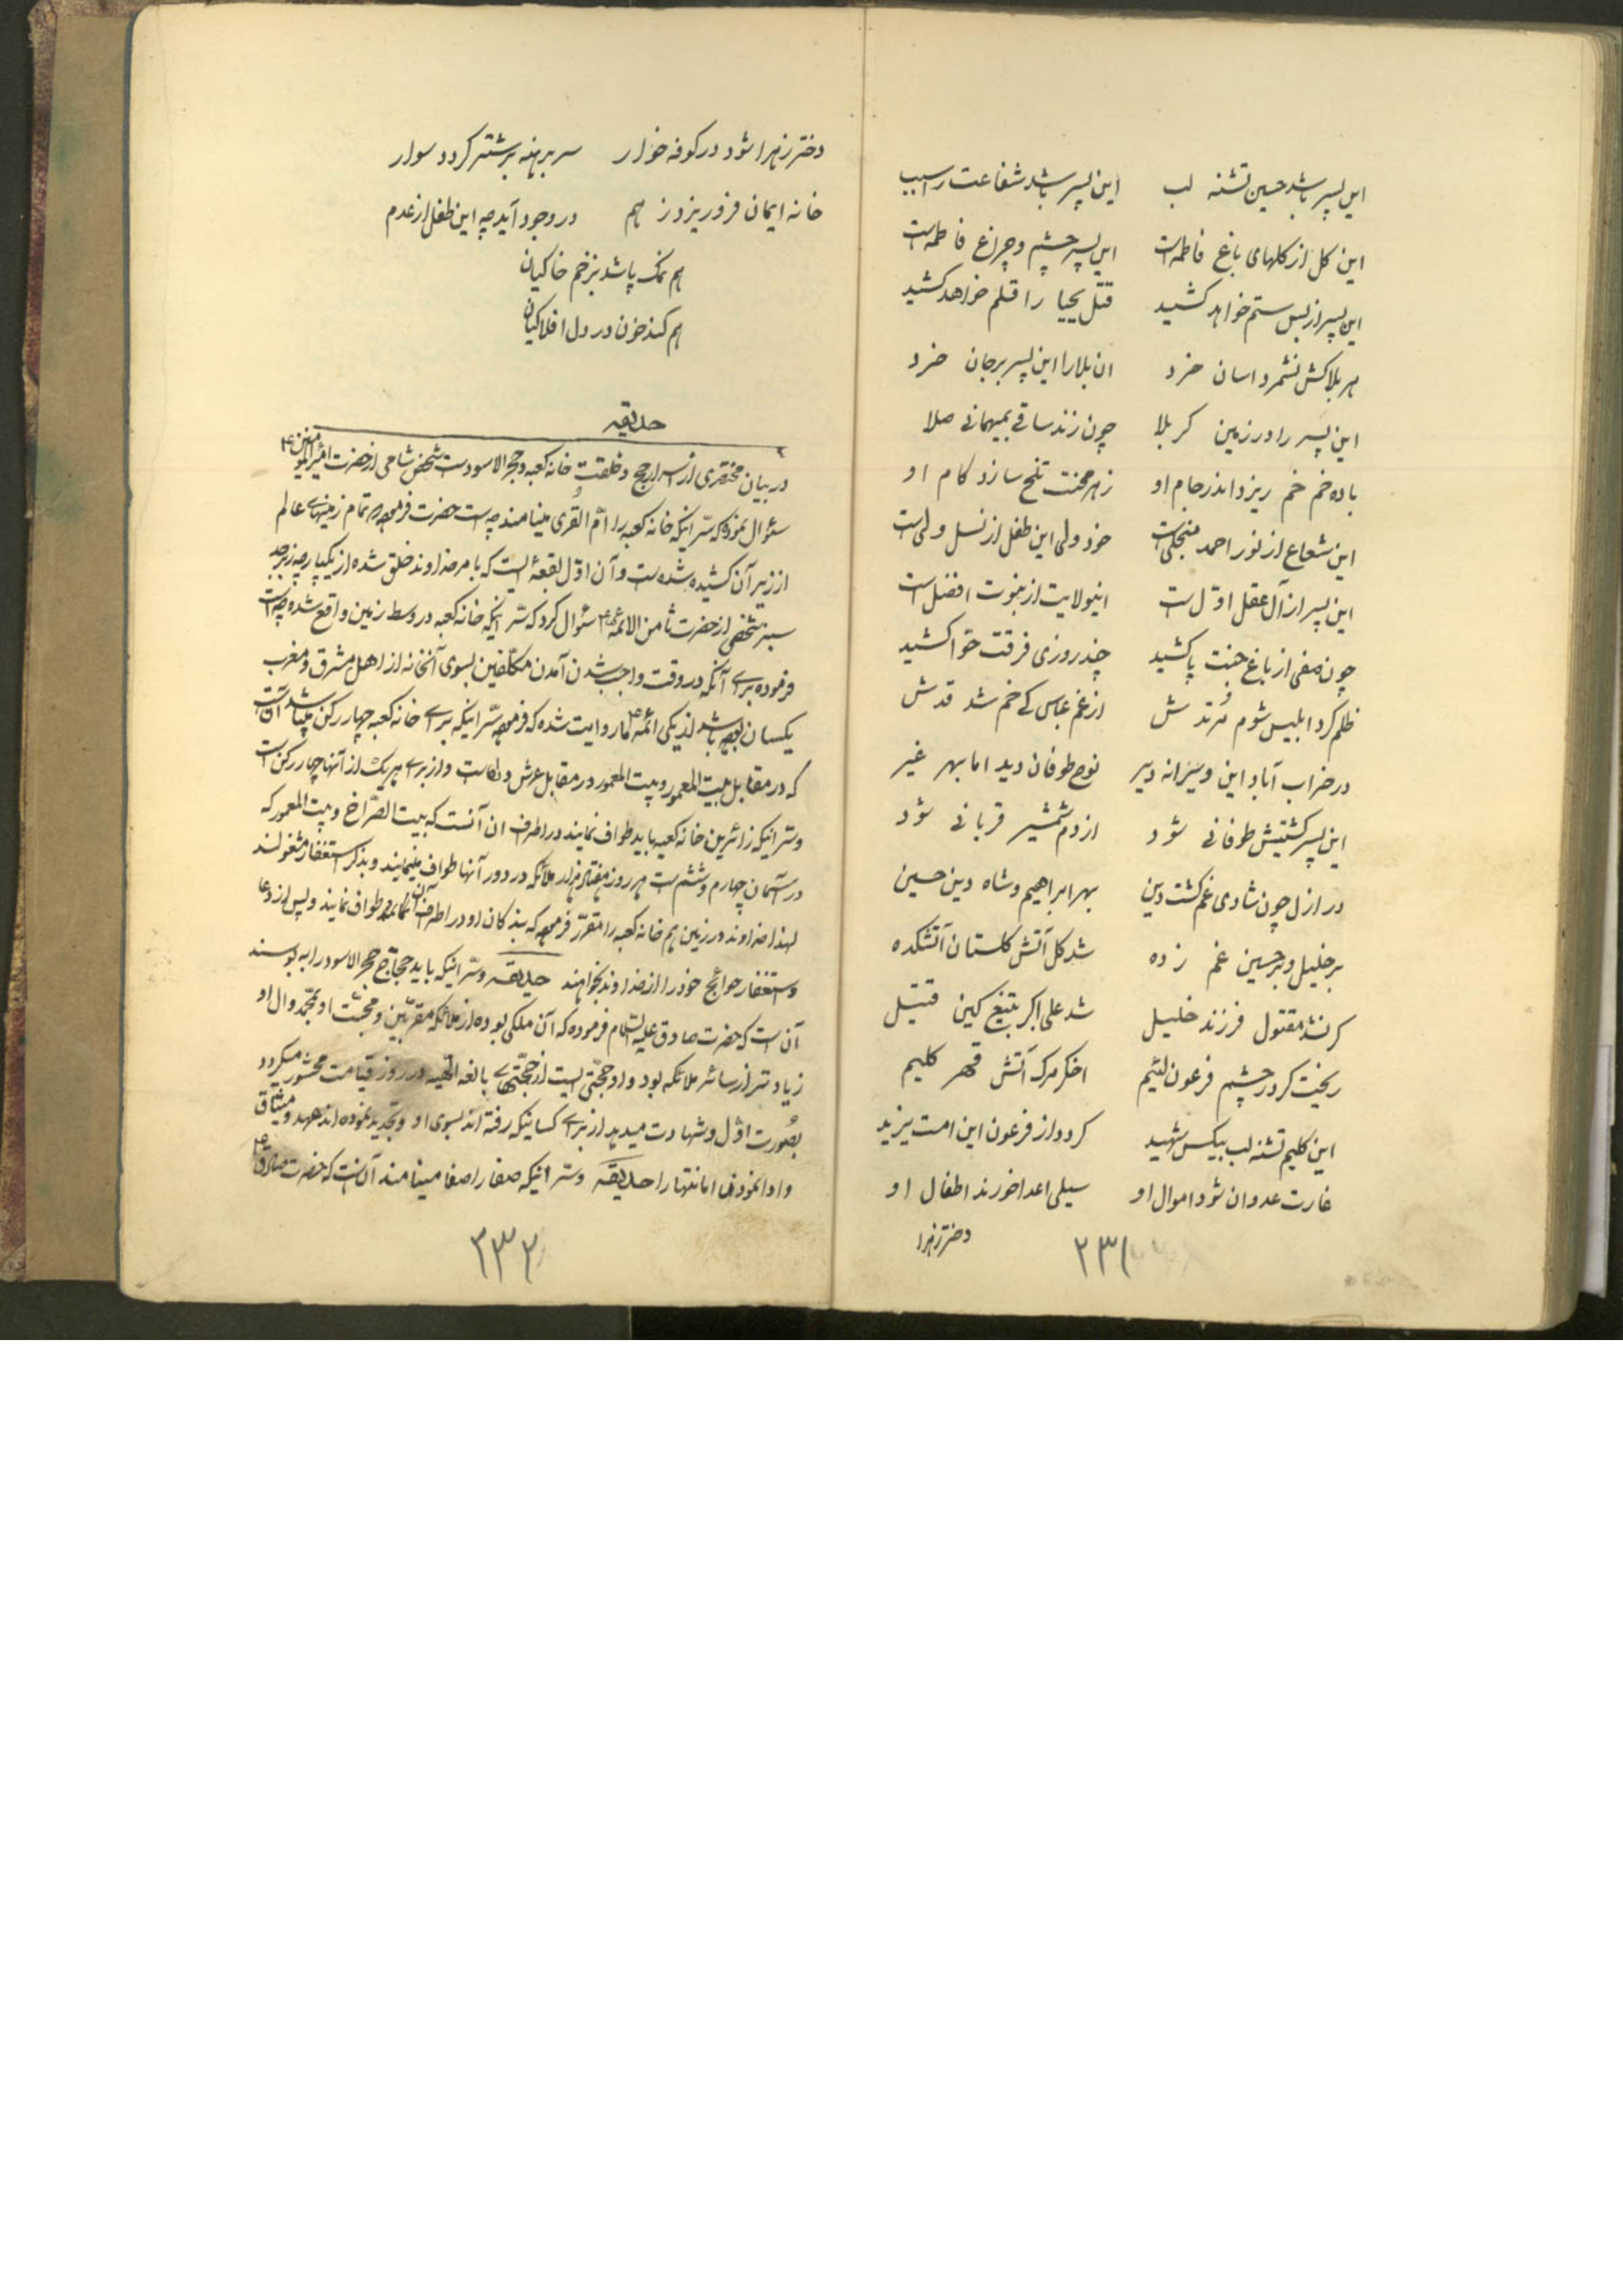 این پسر باشد حسین تشنه لب این پسر باشد شفاعت را سبب
این گل از گلهای باغ فاطمه است این پسر چشم و چراغ فاطمه است
این پسر از بس ستم خواهد کشید قتل یحیا را قلم خواهد کشید
هر بلا کش نشمرد اسان خرد ان بلا را این پسر بر جان خرد
این پسر را در زمین کربلا چون زند ساقی بمیهمانی صلا
باده خم خم ریزد اندر جام او زهر محنت تلخ سازد کام او
این شعاع از نور احمد منجلی است خود ولی این طفل از نسل ولی است
این پسر از آل عقل اوّل است اینولایت از نبوت افضل است
چون صفی از باغ جنت پا کشید چند روزی فرقت حوّا کشید
ظلم کرد ابلیس شوم مرتدش از غم عباس کے خم شد قدش
در خراب آباد این ویرانه دیر نوح طوفان دید اما بهر غیر
این پسر کشتیش طوفانی شود از دم شمشیر قربانی شود
در ازل چون شادی غم کشت دین بهر ابراهیم و شاه دین حسین
بر خلیل و بر حسین غم زده شد گل آتش گلستان آتشکده
گر نشد مقتول فرزند خلیل شد علی اکبر بتیغ کین قتیل
ریخت کر در چشم فرعون لئیم اخگر مرگ آتش قهر کلیم
این کلیم تشنه لب بیکس شهید گردد از فرعون این امت یزید
غارت عدوان شود اموال او سیلی اعدا خورند اطفال او
دختر زهرا
۲۳۱
دختر زهرا شود در کوفه خوار سر برهنه بر شتر گردد سوار
خانه ایمان فرو ریزد ز هم در وجود آید چه این طفل از عدم
هم نمک پاشد بزخم خاکیان
هم کند خون در دل افلاکیان
حدیقه
در بیان مختصری از اسرار حج و خلقت خانه کعبه و حجر الاسود است شخص شامی از حضرت امیر المؤمنین ع
سئوال نمود که سّر اینکه خانه کعبه را امّ القری مینامند چه است حضرت فرموده تمام زمینهای عالم
از زیر آن کشیده شده است و آن اوّل بقعهٔ است که بامر خداوند خلق شده از یکپارچه زبرجد
سبز شخصی از حضرت ثامن الائمه ع سئوال کرد که سّر اینکه خانه کعبه در وسط زمین واقع شده چه است
فرموده برای آنکه در وقت واجب شدن آمدن مکلّفین بسوی آنخانه از اهل مشرق و مغرب
یکسان بوده باشد از یکی ائمّه ما روایت شده که فرموده سّر اینکه برای خانه کعبه چهار رکن میباشد آن است
که در مقابل بیت المعمور و بیت المعمور در مقابل عرش و از برای هریک از آنها چهار رکن است
و سّر اینکه زائرین خانه کعبه باید طواف نمایند در اطراف ان آنست که بیت الصّراخ و بیت المعمور که
در آسمان چهارم و ششم است هر روز هفتاد هزار ملائکه در دور آنها طواف مینمایند و بذکر استغفار مشغولند
لهذا خداوند در زمین هم خانه کعبه را مقرّر فرموده که بندکان او در اطراف آن طواف نمایند و پس از دعا
و استغفار حوائج خود را از خداوند بخواهند حدیقه و سّر اینکه باید حجّاج حجر الاسود را به بوسند
آن است که حضرت صادق علیه السّلام فرموده که آن ملکی بوده از ملائکه مقرّبین و محبّت او بمحمّد و ال او
زیادتر از سائر ملائکه بود و او حجّتی است از حجّتهای بالغه الهیه در روز قیامت محشور میکردد
بصُورت اوّل و شهادت میدهد از برای کسانیکه رفته اند بسوی او و تجدید نموده اند عهد و میثاق
و ادا نمودند امانتها را حدیقه و سّر اینکه صفا را صفا مینامند آن است که حضرت صادق ع
۲۳۲